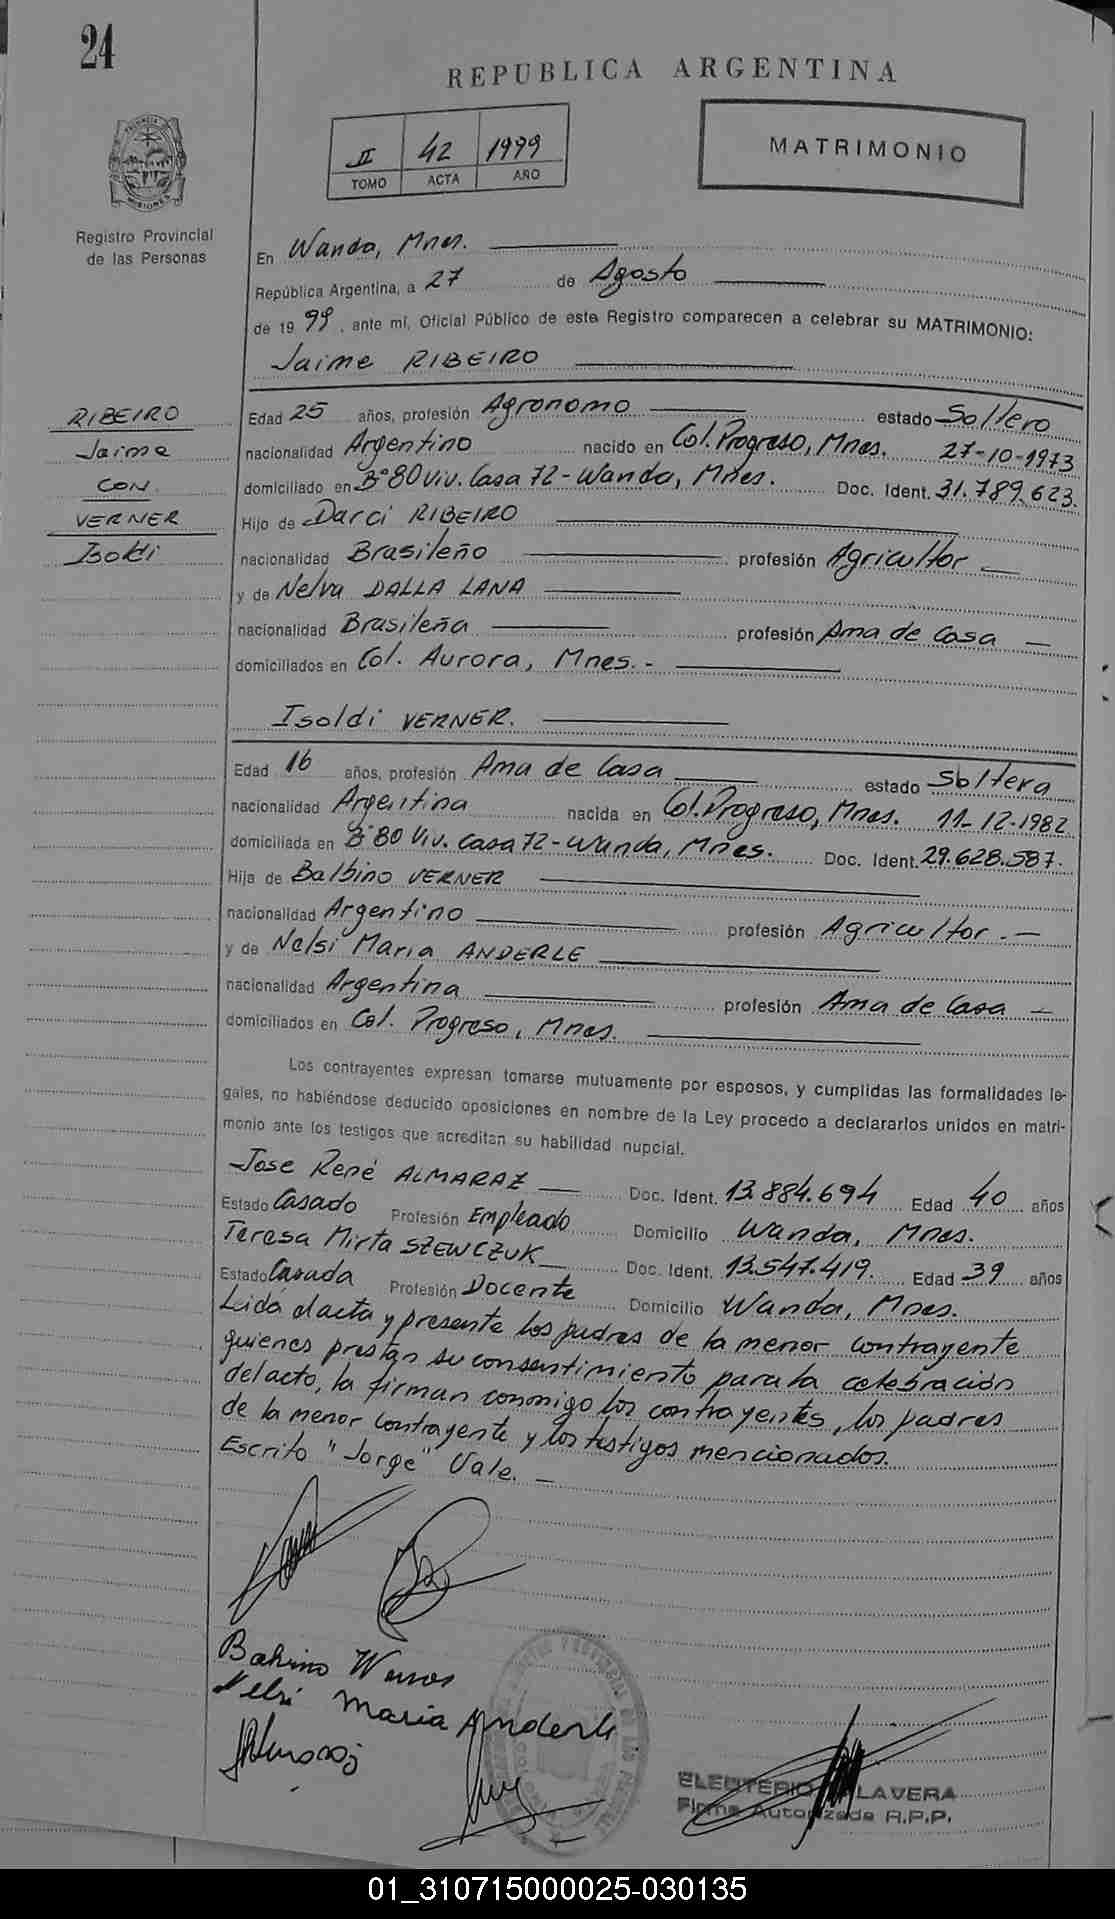 24
REPUBLICA ARGENTINA
II 42 1999
TOMO ACTA AÑO
MATRIMONIO
PROVINCIA MISIONES
Registro Provincial
de las Personas
En Wanda, Mnes.
República Argentina, a 27 de Agosto
de 1999, ante mí, Oficial Público de este Registro comparecen a celebrar su MATRIMONIO:
Jaime RIBEIRO
RIBEIRO
Jaime
CON
VERNER
Isoldi
Edad 25 años, profesión Agronomo estado Soltero
nacionalidad Argentino nacido en Col. Progreso, Mnes. 27-10-1973
domiciliado en Bº 80 Viv. Casa 72 - Wanda, Mnes. Doc. Ident. 31.789.623.
Hijo de Darci RIBEIRO
nacionalidad Brasileño profesión Agricultor
y de Nelva DALLA LANA
nacionalidad Brasileña profesión Ama de Casa
domiciliados en Col. Aurora, Mnes. -
Isoldi VERNER.
Edad 16 años, profesión Ama de Casa estado Soltera
nacionalidad Argentina nacida en Col. Progreso, Mnes. 11-12-1982
domiciliada en Bº 80 Viv. Casa 72 - Wanda, Mnes. Doc. Ident. 29.628.587.
Hija de Balbino VERNER
nacionalidad Argentino profesión Agricultor. -
y de Nelsi Maria ANDERLE
nacionalidad Argentina profesión Ama de Casa
domiciliados en Col. Progreso, Mnes.
Los contrayentes expresan tomarse mutuamente por esposos, y cumplidas las formalidades le-
gales, no habiéndose deducido oposiciones en nombre de la Ley procedo a declararlos unidos en matri-
monio ante los testigos que acreditan su habilidad nupcial.
Jose René ALMARAZ Doc. Ident. 13.884.694 Edad 40 años
Estado Casado Profesión Empleado Domicilio Wanda, Mnes.
Teresa Mirta SZEWCZUK Doc. Ident. 13.547.419. Edad 39 años
Estado Casada Profesión Docente Domicilio Wanda, Mnes.
Leida el acta y presente los padres de la menor contrayente
quienes prestan su consentimiento para la celebración
del acto, la firman conmigo los contrayentes, los padres
de la menor contrayente y los testigos mencionados.
Escrito "Jorge" Vale. -
Nelsi Maria Anderle
ELEUTERIO LAVERA
Firma Autorizada R.P.P.
01_310715000025-030135